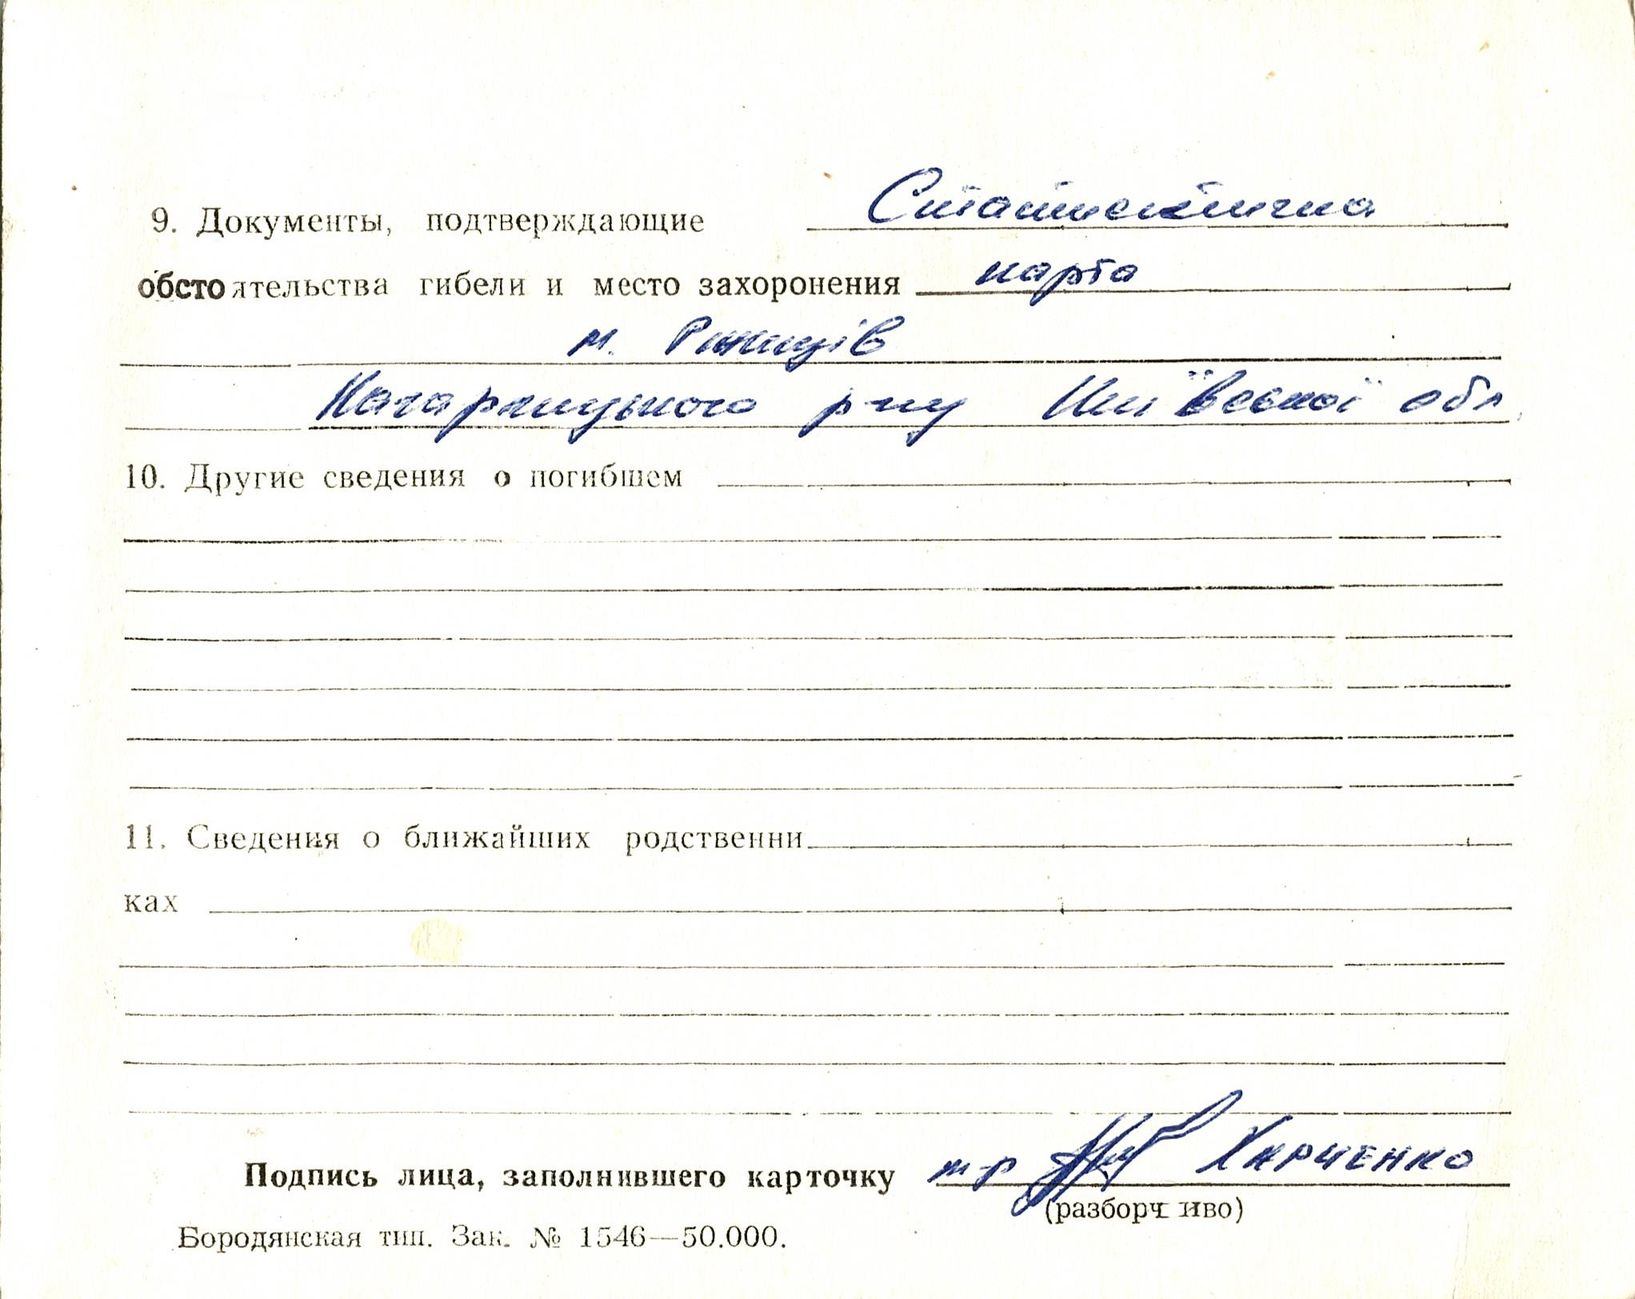 9. Документы, подтверждающие Статистична
обстоятельства гибели и место захоронения карта
м. Ржищів
Кагарлицького р-ну Київської обл
10. Другие сведения о погибшем
11. Сведения о ближайших родственни
ках
Подпись лица, заполнившего карточку м-р Харченко
(разборчиво)
Бородянская тип. Зак. № 1546—50.000.